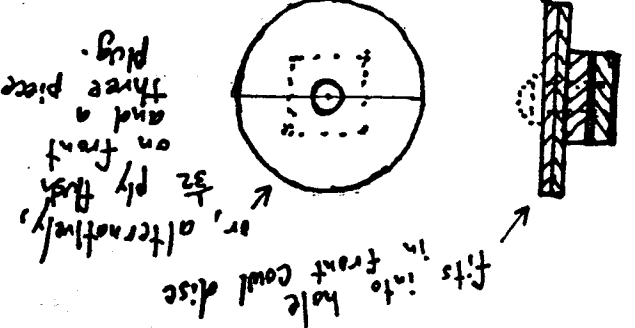 fits into hole
in front cowl disc
or, alternatively,
1/32 ply flush
on front
and a
three piece
plug.